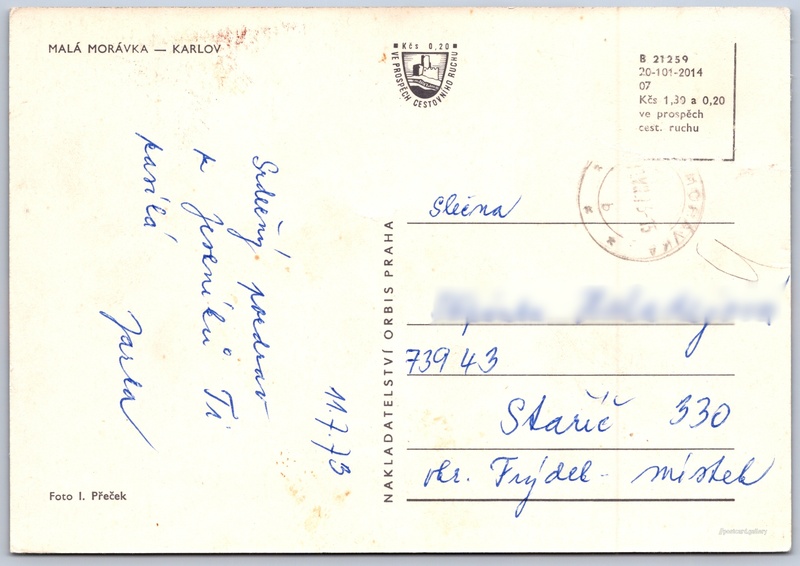 MALÁ MORÁVKA — KARLOV
Kčs 0,20
VE PROSPĚCH CESTOVNÍHO RUCHU
B 21259
20-101-2014
07
Kčs 1,30 a 0,20
ve prospěch
cest. ruchu
MORÁVKA
b
11.7.73
Srdečný pozdrav
z Jeseníků Ti
posílá
Jarka
NAKLADATELSTVÍ ORBIS PRAHA
Slečna
739 43
Staříč 330
okr. Frýdek-Místek
Foto I. Přeček